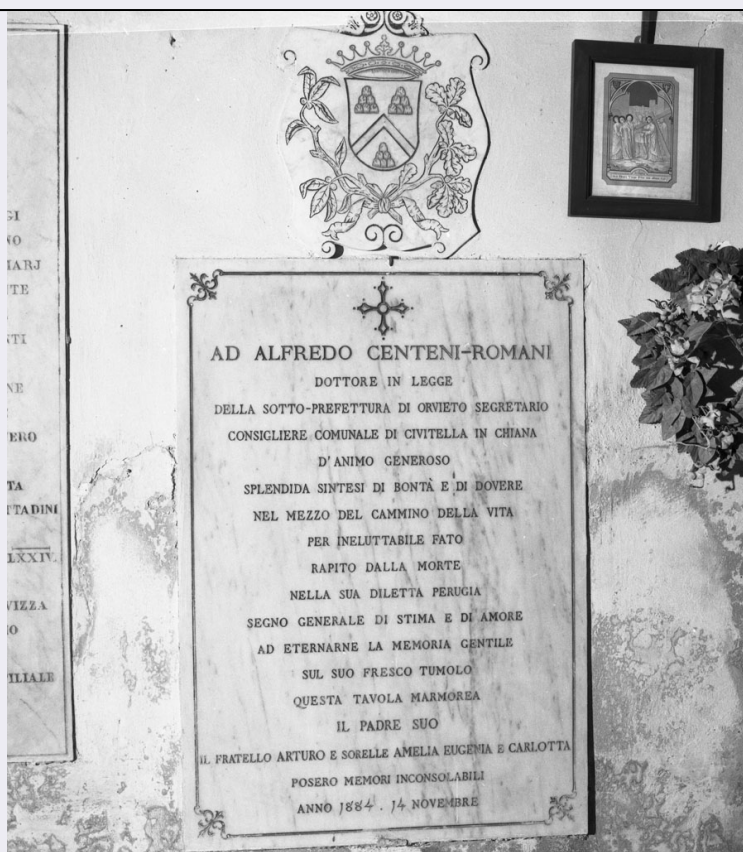 GI
NO
MARJ
NTE
NTI
NE
ERO
TA
TTADINI
LXXIV.
VIZZA
NO
ILIALE
AD ALFREDO CENTENI-ROMANI
DOTTORE IN LEGGE
DELLA SOTTO-PREFETTURA DI ORVIETO SEGRETARIO
CONSIGLIERE COMUNALE DI CIVITELLA IN CHIANA
D'ANIMO GENEROSO
SPLENDIDA SINTESI DI BONTÀ E DI DOVERE
NEL MEZZO DEL CAMMINO DELLA VITA
PER INELUTTABILE FATO
RAPITO DALLA MORTE
NELLA SUA DILETTA PERUGIA
SEGNO GENERALE DI STIMA E DI AMORE
AD ETERNARNE LA MEMORIA GENTILE
SUL SUO FRESCO TUMOLO
QUESTA TAVOLA MARMOREA
IL PADRE SUO
IL FRATELLO ARTURO E SORELLE AMELIA EUGENIA E CARLOTTA
POSERO MEMORI INCONSOLABILI
ANNO 1884. 14 NOVEMBRE